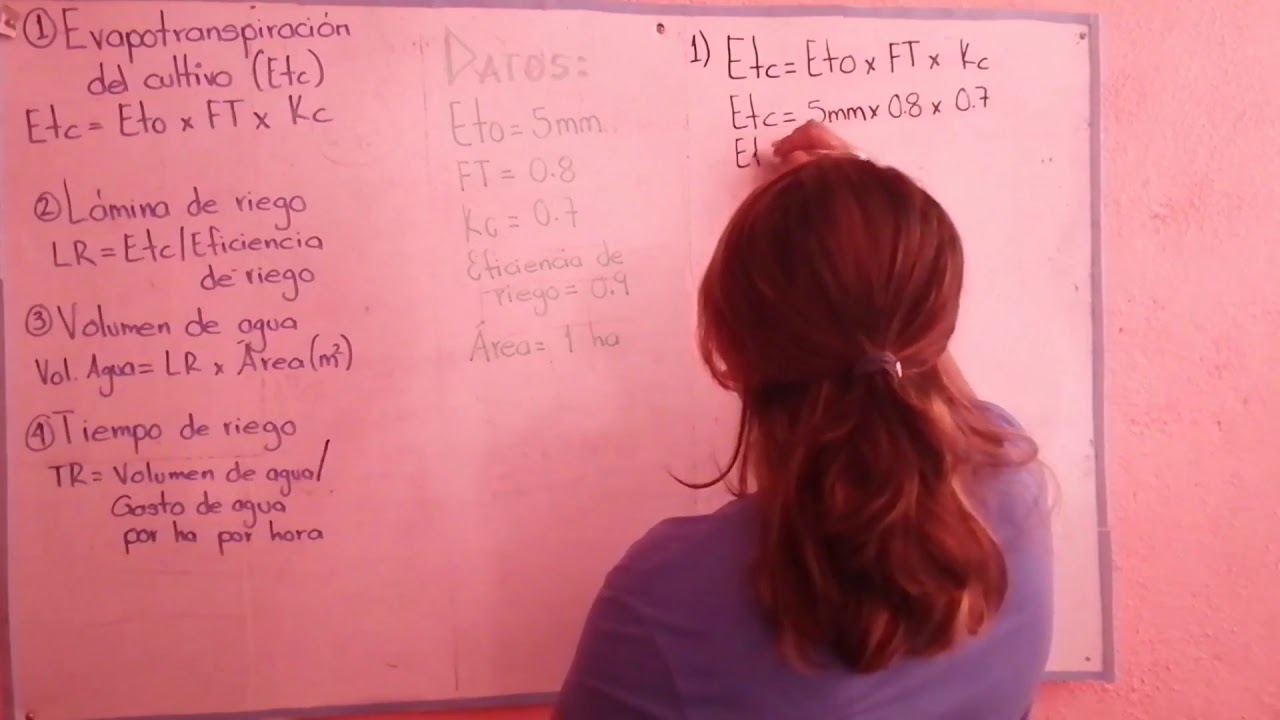 ① Evapotranspiración
del cultivo (Etc)
Etc = Eto x FT x Kc
② Lámina de riego
LR = Etc/Eficiencia
de riego
③ Volumen de agua
Vol. Agua = LR x Área (m²)
④ Tiempo de riego
TR = Volumen de agua/
Gasto de agua
por ha por hora
DATOS:
Eto = 5mm
FT = 0.8
Kc = 0.7
Eficiencia de
riego = 0.9
Área = 1 ha
1) Etc = Eto x FT x Kc
Etc = 5mm x 0.8 x 0.7
Et